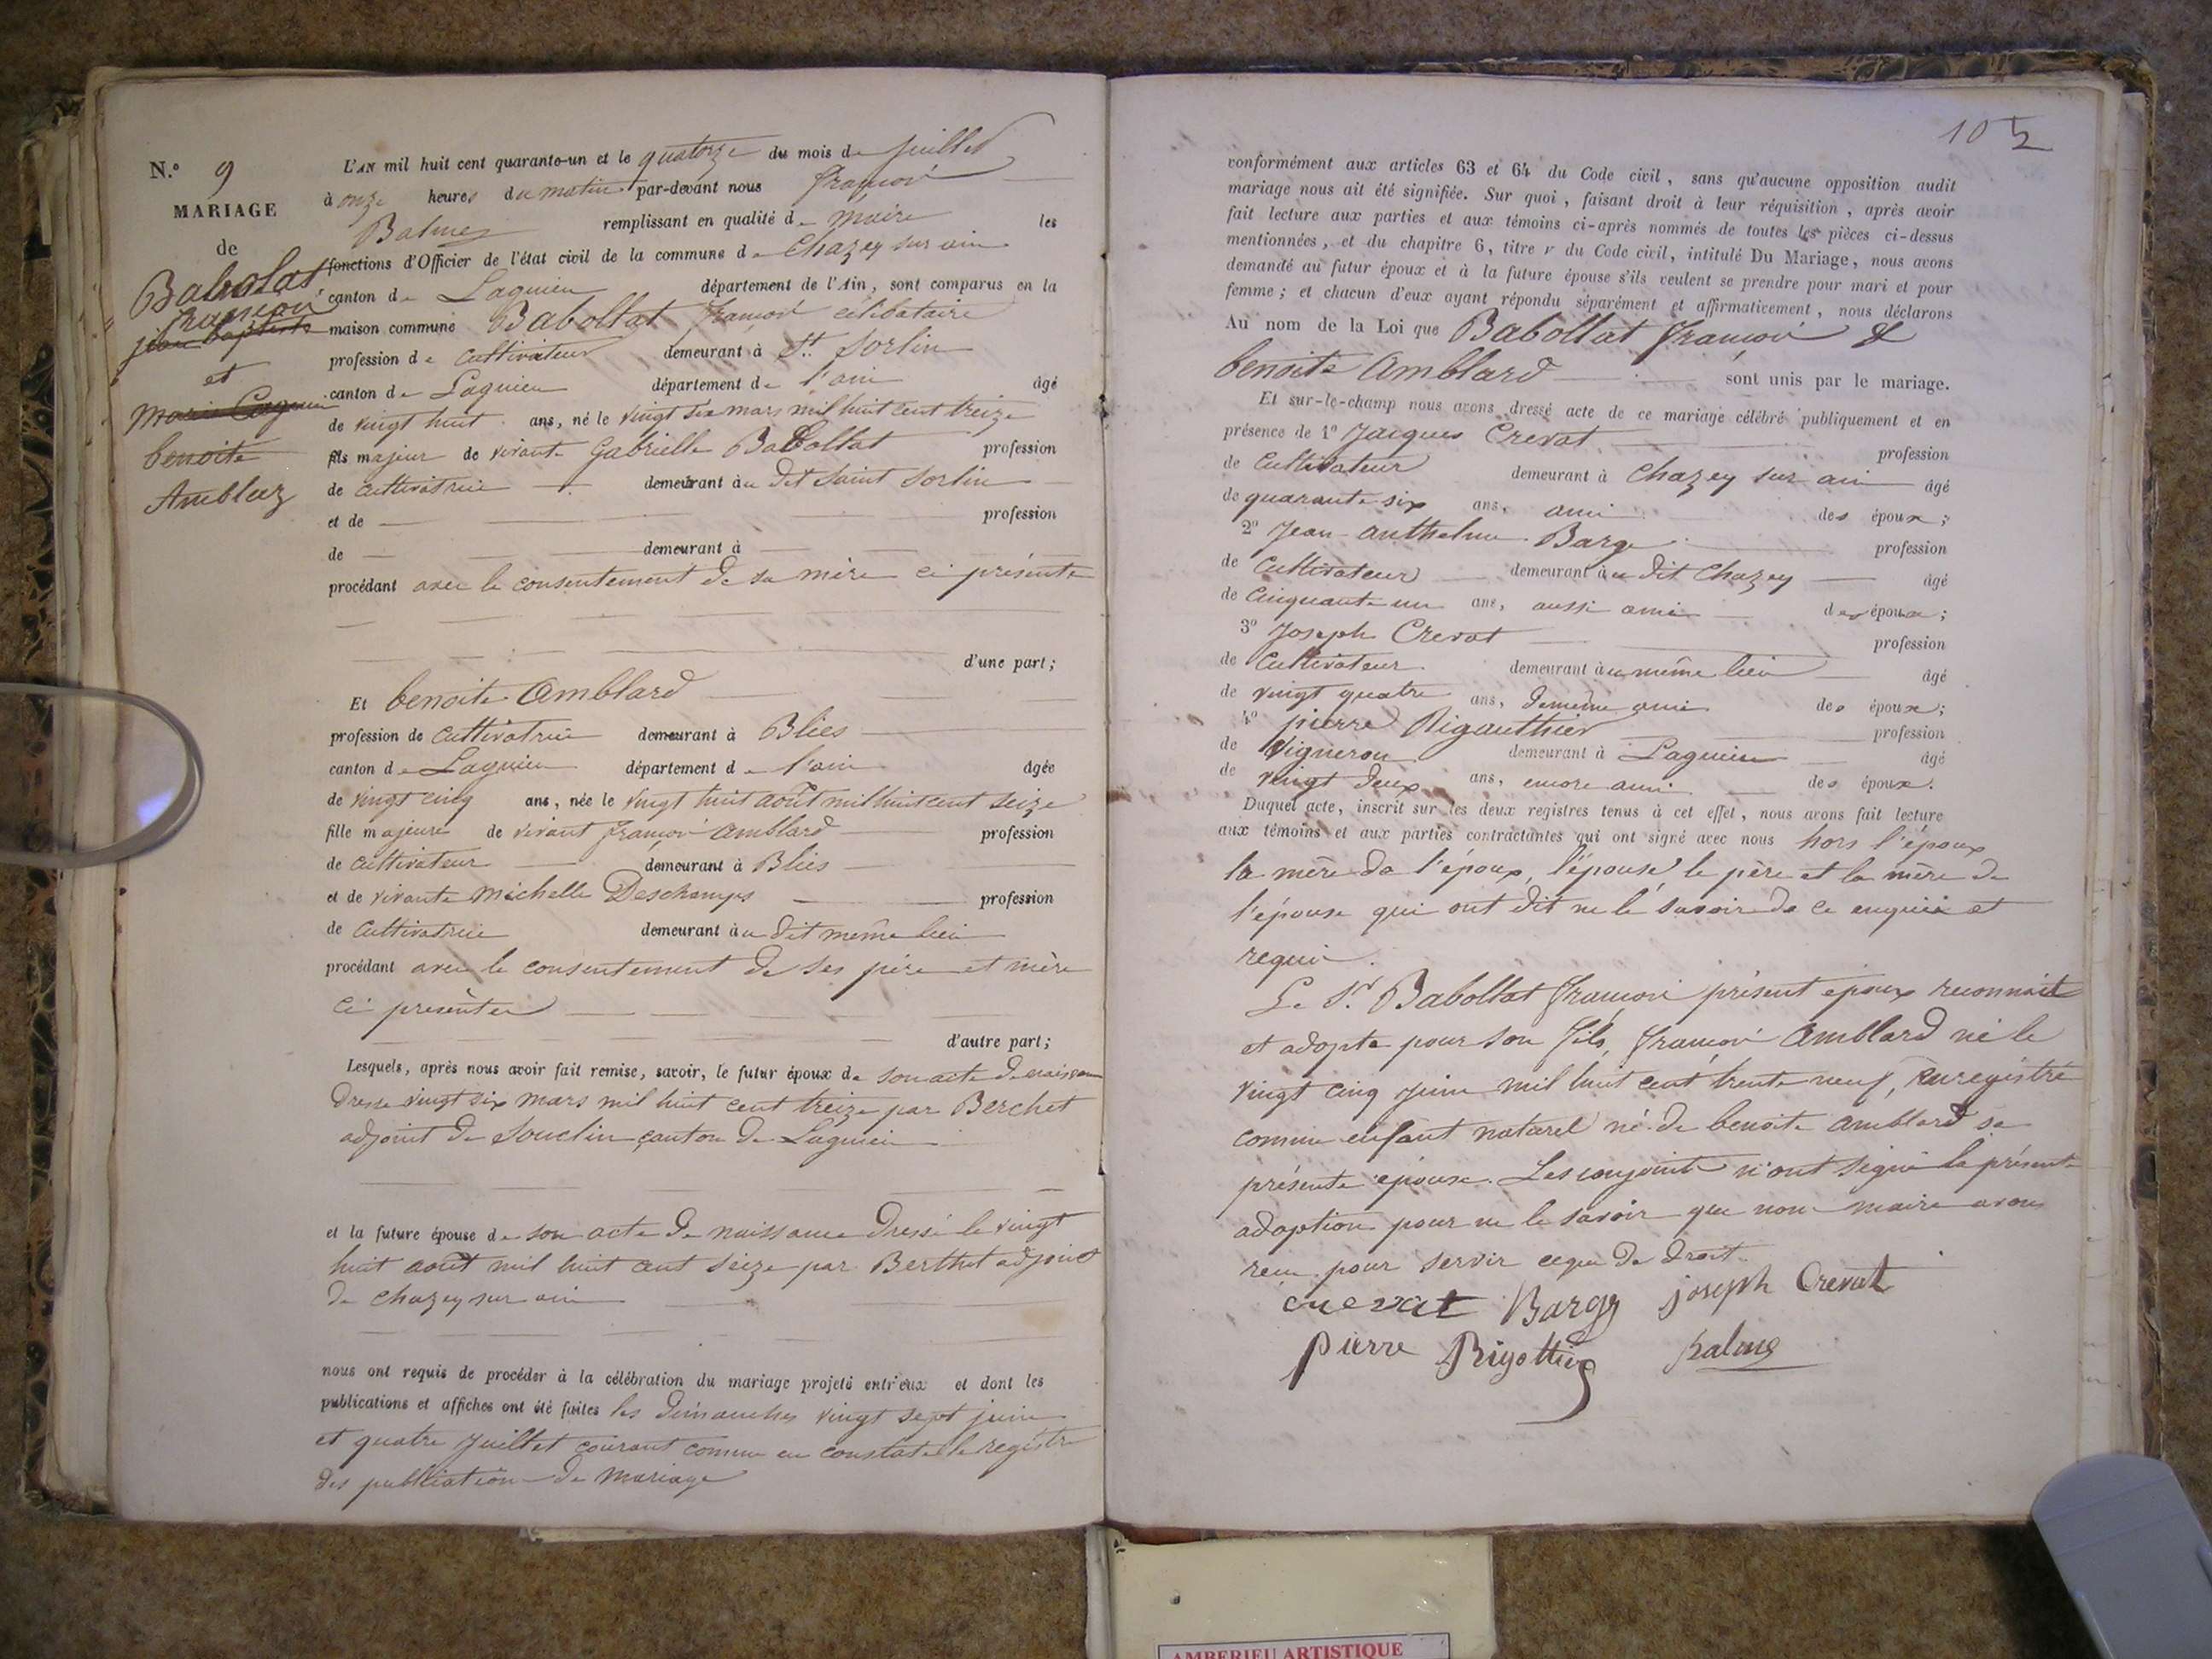 N.º 9
MARIAGE
de
Babolat
françoi
jean baptiste
et
marie
benoite
Amblaz
L'AN mil huit cent quarante-un et le quatorze du mois de juillet
à onze heures du matin par-devant nous françoi
Balme remplissant en qualité de maire les
fonctions d'Officier de l'état civil de la commune de Chazey sur ain
canton de Lagnieu département de l'Ain, sont comparus en la
maison commune Babollat françoi célibataire
profession de cultivateur demeurant à St. Sorlin
canton de Lagnieu département de l'ain âgé
de vingt huit ans, né le vingt six mars mil huit cent treize
fils majeur de vivante Gabrielle Babollat profession
de cultivatrice demeurant au dit Saint Sorlin
et de profession
de demeurant à
procédant avec le consentement de sa mère ci présente
d'une part;
Et benoite Amblard
profession de cultivatrice demeurant à Blies
canton de Lagnieu département de l'ain âgée
de vingt cinq ans, née le vingt huit août mil huit cent seize
fille majeure de vivant françoi amblard profession
de cultivateur demeurant à Blies
et de vivante michelle Deschamps profession
de cultivatrice demeurant au dit même lieu
procédant avec le consentement de ses père et mère
ci presenter
d'autre part;
Lesquels, après nous avoir fait remise, savoir, le futur époux de son acte de naissance
Dressé vingt six mars mil huit cent treize par Berchet
adjoint de Souclin canton de Lagnieu
et la future épouse de son acte de naissance Dressé le vingt
huit août mil huit cent seize par Berthet adjoint
de chazey sur ain
nous ont requis de procéder à la célébration du mariage projeté entr'eux et dont les
publications et affiches ont été faites les dimanches vingt sept juin
et quatre juillet courant comme en constate le registre
des publication de mariage
105
conformément aux articles 63 et 64 du Code civil, sans qu'aucune opposition audit
mariage nous ait été signifiée. Sur quoi, faisant droit à leur réquisition, après avoir
fait lecture aux parties et aux témoins ci-après nommés de toutes les pièces ci-dessus
mentionnées, et du chapitre 6, titre v du Code civil, intitulé Du Mariage, nous avons
demandé au futur époux et à la future épouse s'ils veulent se prendre pour mari et pour
femme; et chacun d'eux ayant répondu séparément et affirmativement, nous déclarons
Au nom de la Loi que Babollat françoi &
benoite Amblard sont unis par le mariage.
Et sur-le-champ nous avons dressé acte de ce mariage célébré publiquement et en
présence de 1º Jacques Crevat profession
de Cultivateur demeurant à Chazey sur ain âgé
de quarante six ans, ami des époux;
2º Jean anthelme Barge profession
de Cultivateur demeurant au dit Chazey âgé
de Cinquante un ans, aussi ami des époux;
3º Joseph Crevat profession
de Cultivateur demeurant au même lieu âgé
de vingt quatre ans, de même ami des époux;
4º pierre Rigauthier profession
de Vigneron demeurant à Lagnieu âgé
de vingt deux ans, encore ami des époux.
Duquel acte, inscrit sur les deux registres tenus à cet effet, nous avons fait lecture
aux témoins et aux parties contractantes qui ont signé avec nous hors l'époux
la mère de l'époux, l'épouse, le père et la mère de
l'épouse qui ont dit ne le savoir de ce enquis et
requi.
Le Sr. Babollat françoi présent époux reconnait
et adopte pour son fils, françoi Amblard né le
vingt cinq juin mil huit cent trente neuf, Enregistré
comme enfant naturel né de benoite amblard sa
présente épouse. Les conjoints n'ont signé la présente
adoption pour ne le savoir que nous maire avons
reçu pour servir ceque de droit.
crevat Barge joseph Crevat
pierre Rigottier Balme
AMBERIEU ARTISTIQUE